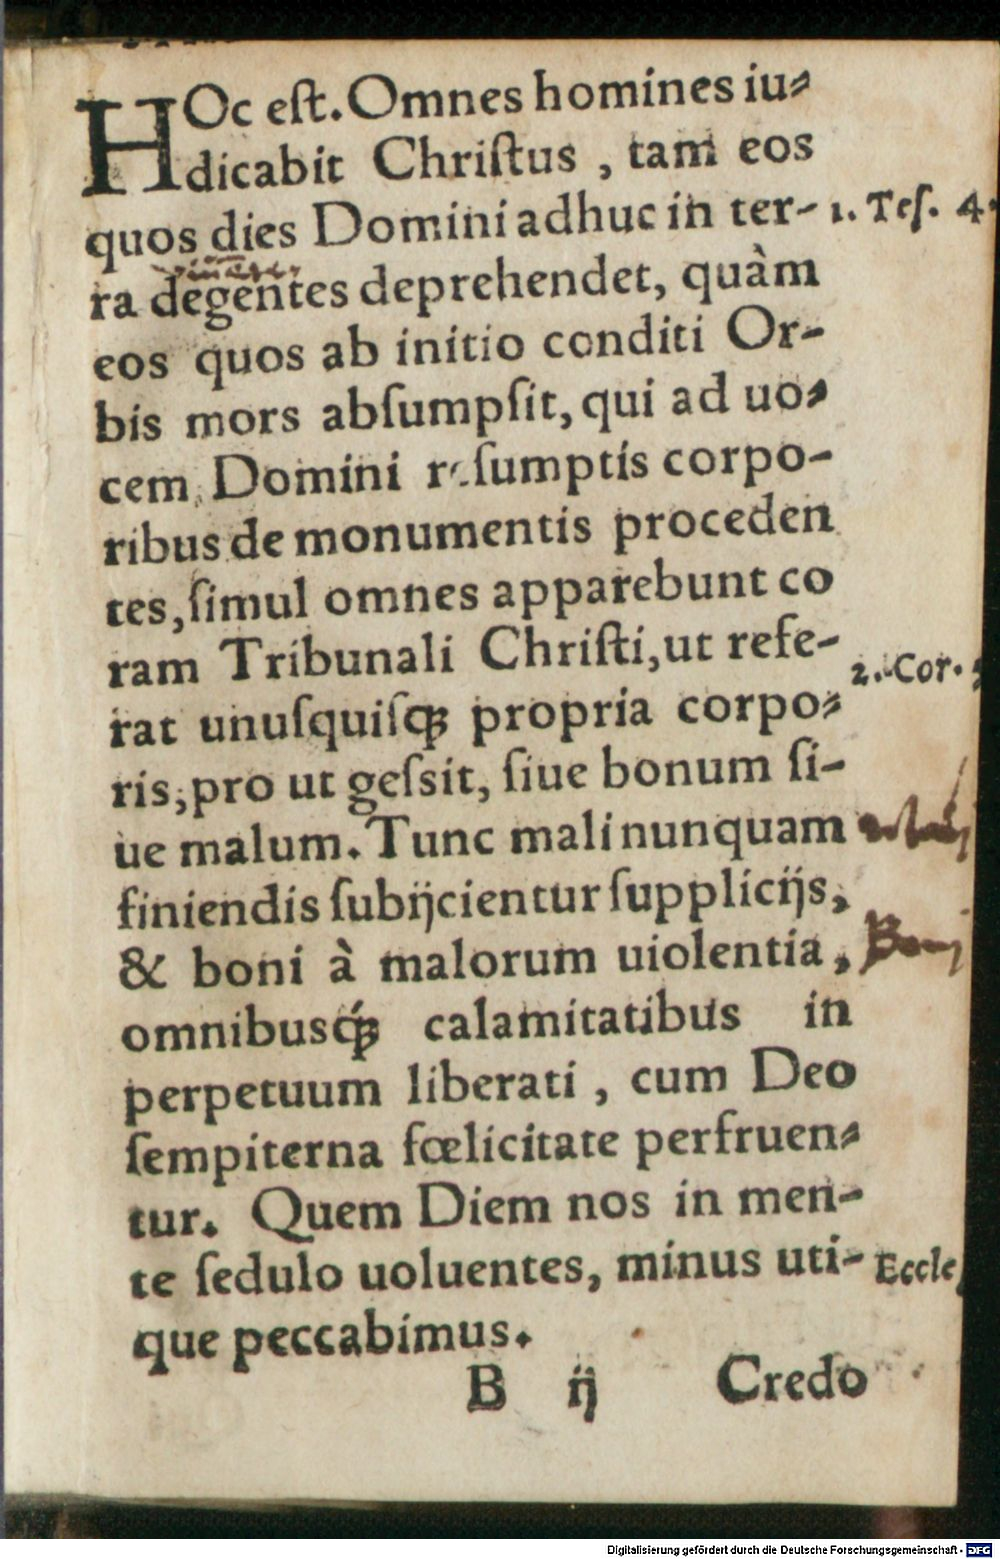 HOc eſt. Omnes homines iu⸗
dicabit Chriſtus, tam eos
quos dies Domini adhuc in ter- 1. Teſ. 4.
ra degentes deprehendet, quàm
eos quos ab initio conditi Or-
bis mors abſumpſit, qui ad uo⸗
cem Domini reſumptis corpo-
ribus de monumentis proceden
tes, ſimul omnes apparebunt co
ram Tribunali Chriſti, ut refe-
2. Cor.
rat unuſquiſqꝫ propria corpo⸗
ris, pro ut geſsit, ſiue bonum ſi-
ue malum. Tunc mali nunquam
finiendis ſubijcientur ſupplicijs,
& boni à malorum uiolentia, Boni
omnibusq́ꝫ calamitatibus in
perpetuum liberati, cum Deo
ſempiterna fœlicitate perfruen⸗
tur. Quem Diem nos in men-
te ſedulo uoluentes, minus uti- Eccle
que peccabimus.
B ij Credo
Digitalisierung gefördert durch die Deutsche Forschungsgemeinschaft - DFG